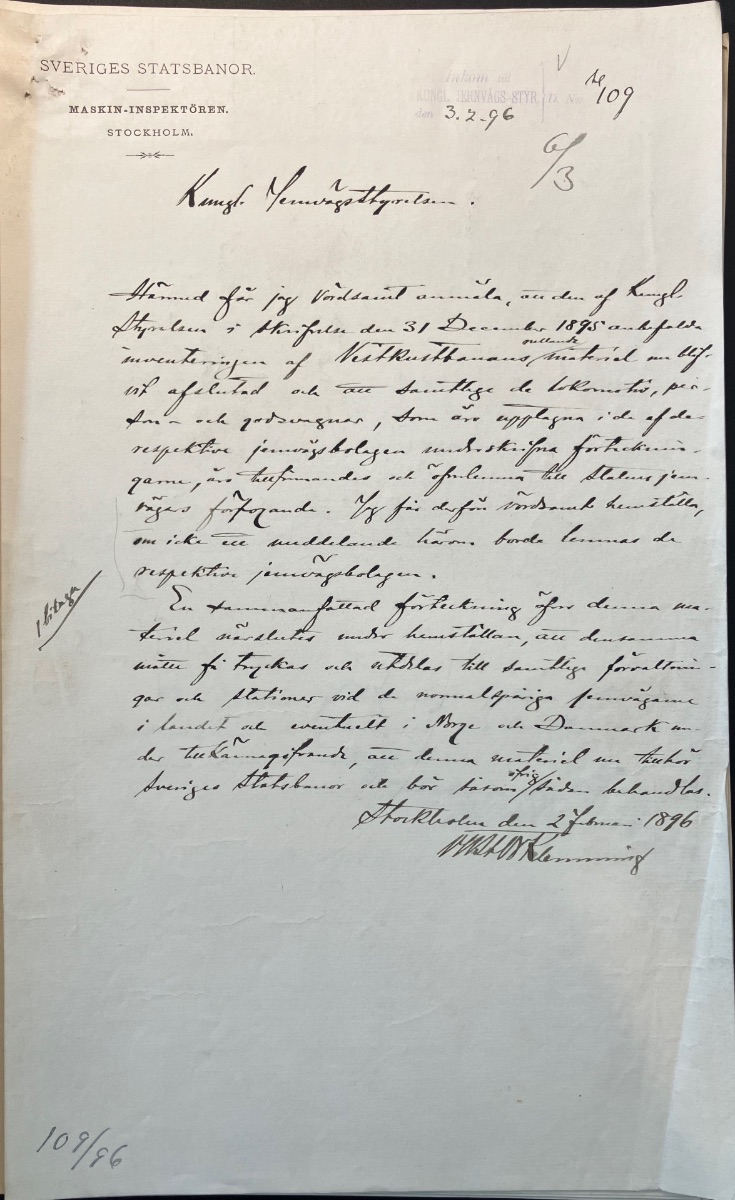 SVERIGES STATSBANOR.
MASKIN-INSPEKTÖREN.
STOCKHOLM.
Inkom till
KONGL. JERNVÄGS-STYR. D. No 109
den 3.2.96
6/3
Kungl. Jernvägsstyrelsen.
Härmed får jag vördsamt anmäla, att den af Kungl.
Styrelsen i skrifvelse den 31 December 1895 anbefalda
inventeringen af Vestkustbanans rullande materiel nu blif-
vit afslutad och att samtlige de lokomotiv, per-
son- och godsvagnar, som äro upptagna i de af de
respektive jernvägsbolagen underskrifna förtecknin-
garne, äro tillfinnandes och öfverlemnade till Statens jern-
vägars förfogande. Jag får derför vördsamt hemställa,
om icke ett meddelande härom borde lemnas de
respektive jernvägsbolagen.
1 bilaga
En sammanfattad förteckning öfver denna ma-
teriel närslutes under hemställan, att densamma
måtte få tryckas och utdelas till samtlige förvaltnin-
gar och stationer vid de normalspåriga jernvägarne
i landet och eventuelt i Norge och Danmark un-
der tillkännagifvande, att denna materiel nu tillhör
Sveriges Statsbanor och bör såsom öfrig sådan behandlas.
Stockholm den 2 Februari 1896
Klemming
109/96